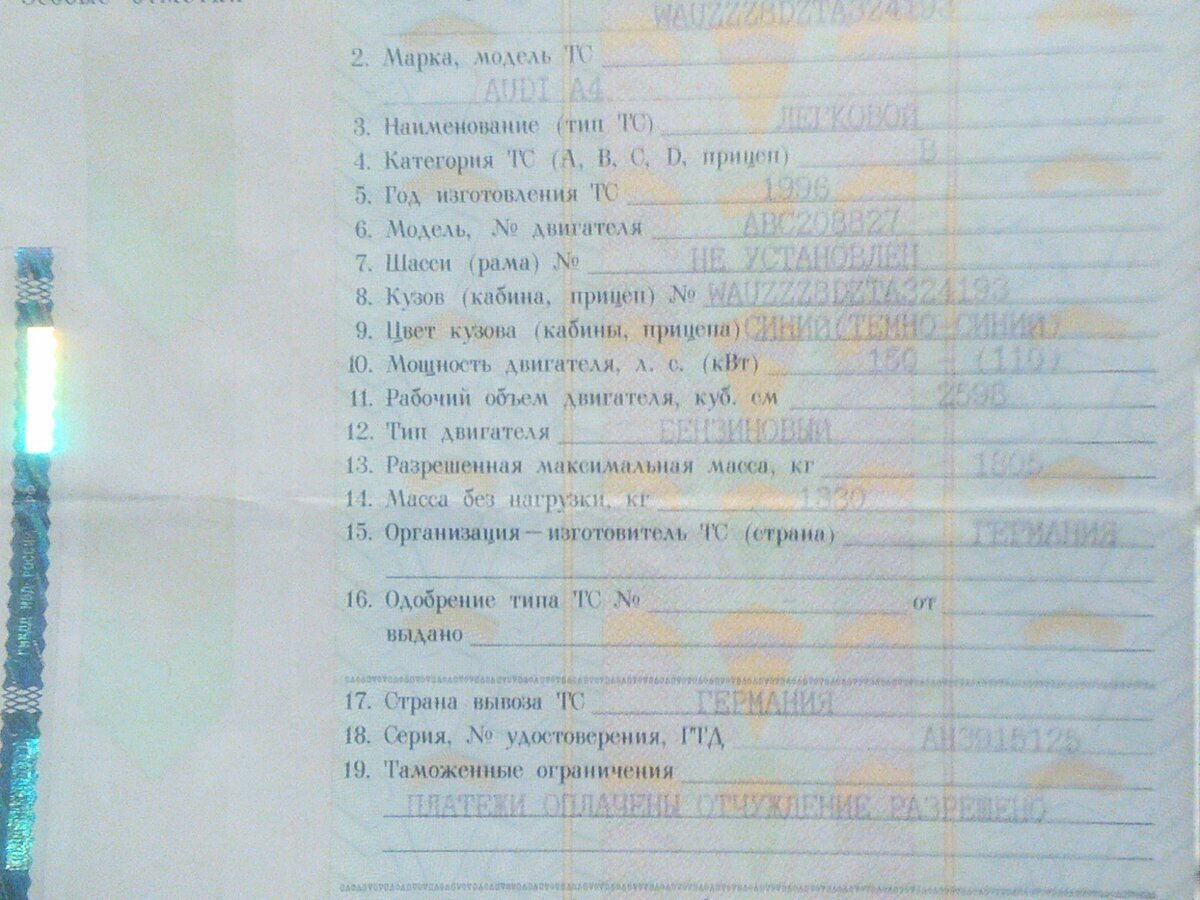 Особые отметки
WAUZZZ8DZTA324193
2. Марка, модель ТС
AUDI A4
3. Наименование (тип ТС) ЛЕГКОВОЙ
4. Категория ТС (А, В, С, D, прицеп) В
5. Год изготовления ТС 1996
6. Модель, № двигателя ABC208827
7. Шасси (рама) № НЕ УСТАНОВЛЕН
8. Кузов (кабина, прицеп) № WAUZZZ8DZTA324193
9. Цвет кузова (кабины, прицепа) СИНИЙ(ТЕМНО-СИНИЙ)
10. Мощность двигателя, л. с. (кВт) 150 - (110)
11. Рабочий объем двигателя, куб. см 2598
12. Тип двигателя БЕНЗИНОВЫЙ
13. Разрешенная максимальная масса, кг 1805
14. Масса без нагрузки, кг 1330
15. Организация—изготовитель ТС (страна) ГЕРМАНИЯ
16. Одобрение типа ТС № - от
выдано
17. Страна вывоза ТС ГЕРМАНИЯ
18. Серия, № удостоверения, ГТД 3915125
19. Таможенные ограничения
ПЛАТЕЖИ ОПЛАЧЕНЫ ОТЧУЖДЕНИЕ РАЗРЕШЕНО